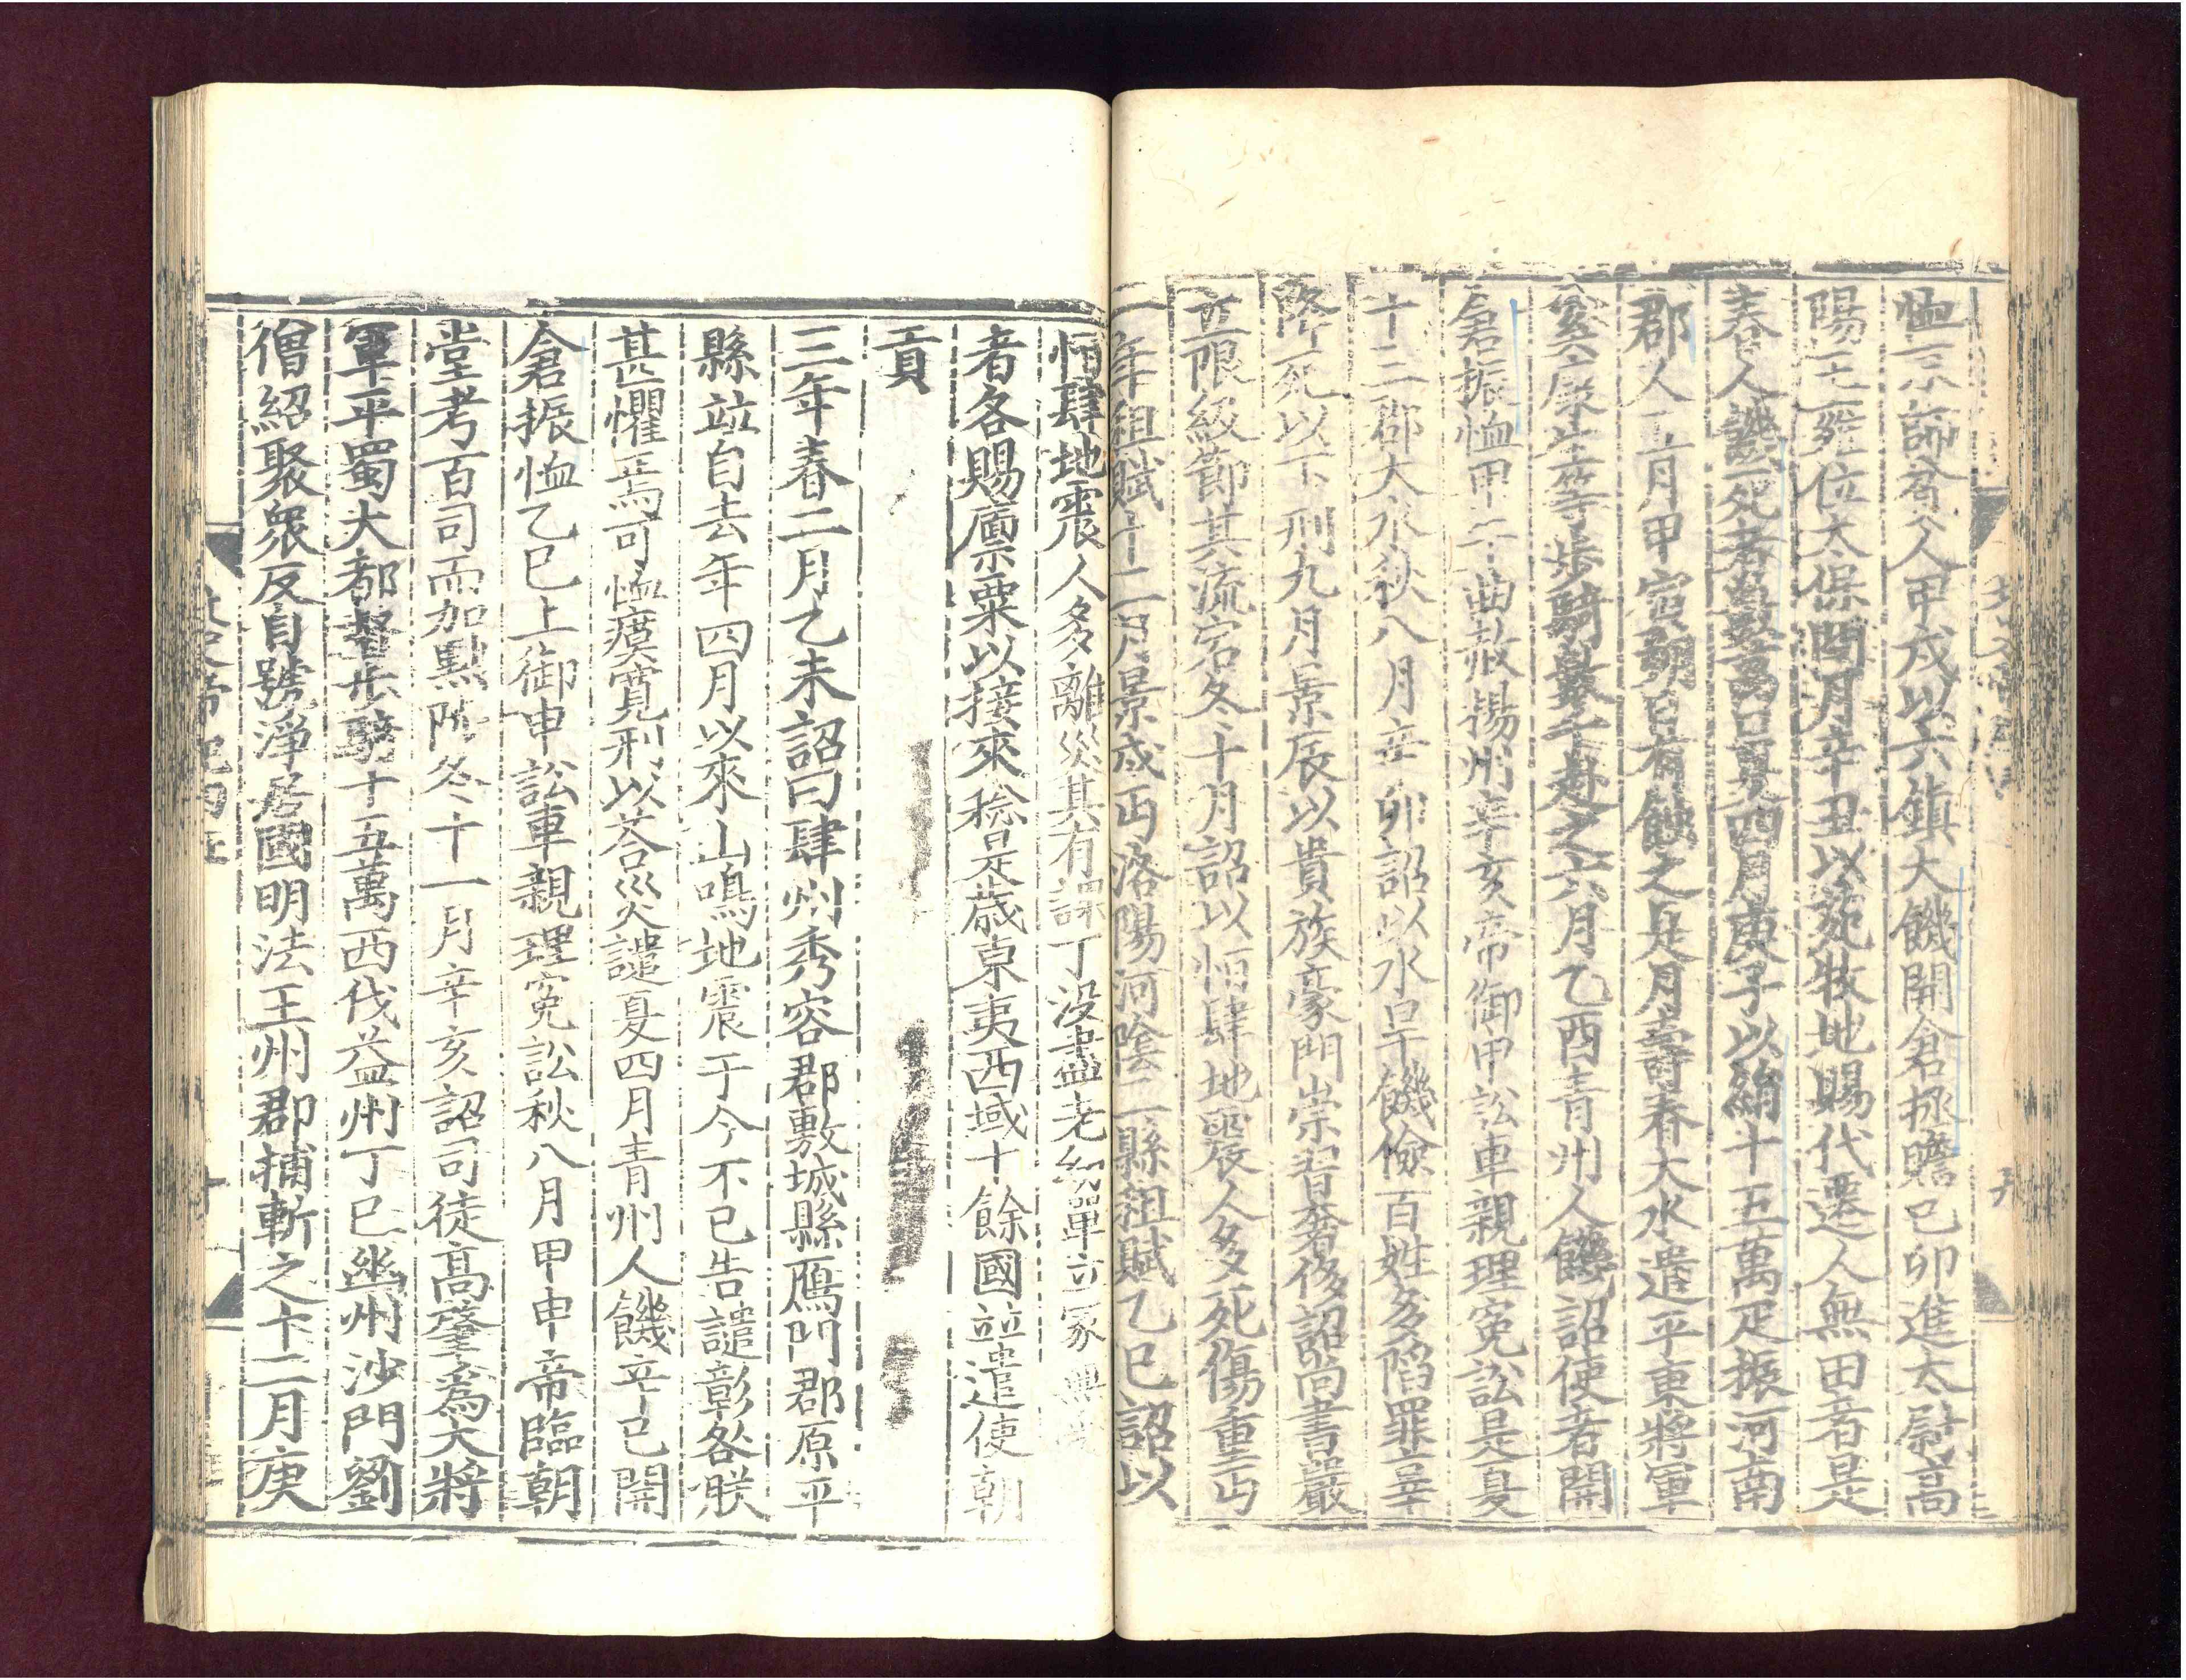 恤京師貧人甲戌以六鎮大饑開倉振贍己卯進太尉高
陽王雍位太保閏月辛丑以苑牧地賜代遷人無田者是
春人饑死者數萬口夏四月庚子以絹十五萬疋振河南
郡人五月甲寅朔日有蝕之是月壽春大水遣平東將軍
奚康生等步騎數千赴之六月乙酉青州人饑詔使者開
倉振恤甲午曲赦揚州辛亥帝御申訟車親理冤訟是夏
十三郡大水秋八月辛卯詔以水旱饑儉百姓多陷罪辜
降死以下刑九月景辰以貴族豪門崇習奢侈詔尚書嚴
立限級節其流宕冬十月詔以恒肆地震人多死傷重丐
一年租賦十二月景戌丐洛陽河陰二縣租賦乙巳詔以
恒肆地震人多離災其有課丁沒盡老幼單立家
者各賜廩粟以接來稔是歲東夷西域十餘國並遣使朝
貢
三年春二月乙未詔曰肆州秀容郡敷城縣鴈門郡原平
縣並自去年四月以來山鳴地震于今不已告譴彰咎朕
甚懼焉可恤瘼寬刑以荅災譴夏四月青州人饑辛巳開
倉振恤乙巳上御申訟車親理冤訟秋八月甲申帝臨朝
堂考百司而加黜陟冬十一月辛亥詔司徒高肇爲大將
軍平蜀大都督步騎十五萬西伐益州丁巳幽州沙門劉
僧紹聚衆反自號淨居國明法王州郡捕斬之十二月庚